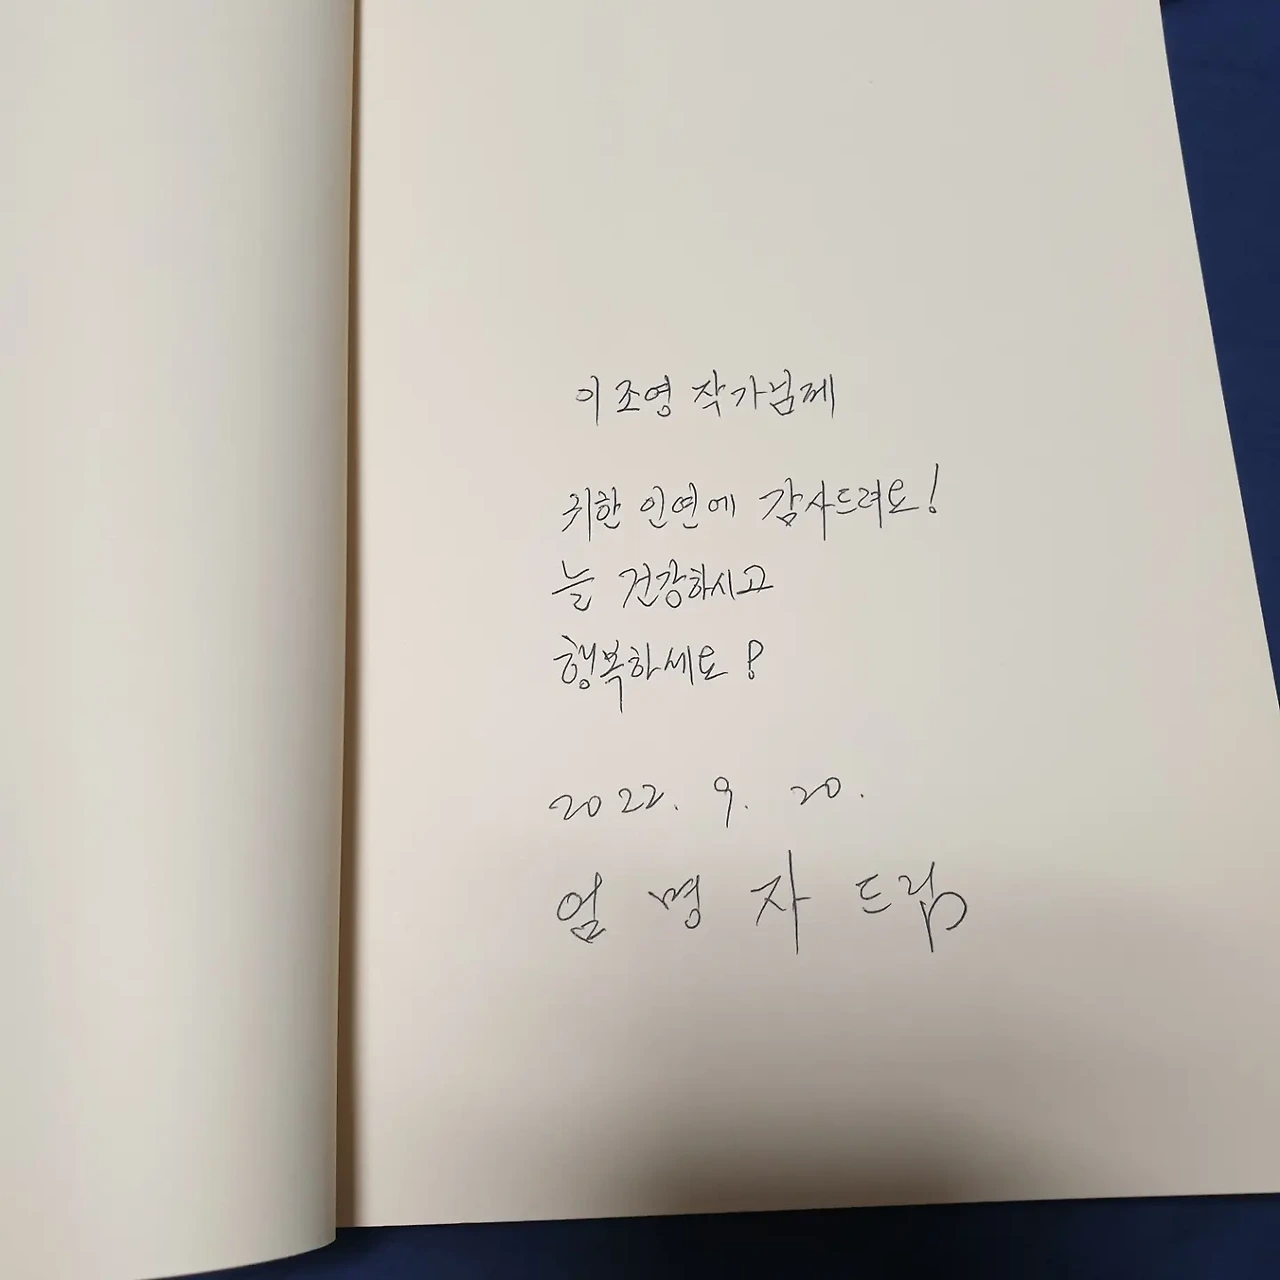 이조영 작가님께
귀한 인연에 감사드려요!
늘 건강하시고
행복하세요!
2022. 9. 20.
엄 명 자 드림